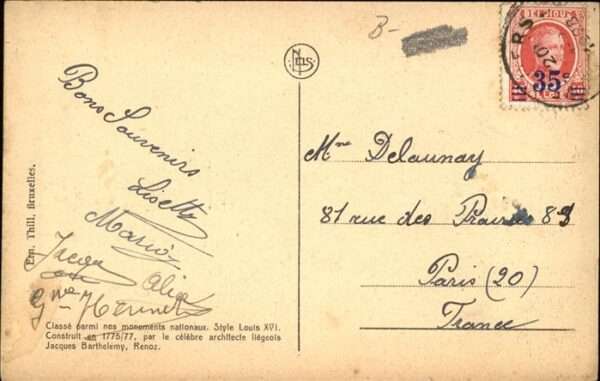 B-
NELS
BELGIQUE
35c
ERS
20
Bons Souvenirs
Lisette
Maria
Alia
Gme Hennet
Ern. Thill, Bruxelles.
Mme Delaunay
81 rue des Prairies 83
Paris (20)
France
Classé parmi nos monuments nationaux. Style Louis XVI.
Construit en 1775/77, par le célèbre architecte liégeois
Jacques Barthelemy, Renoz.